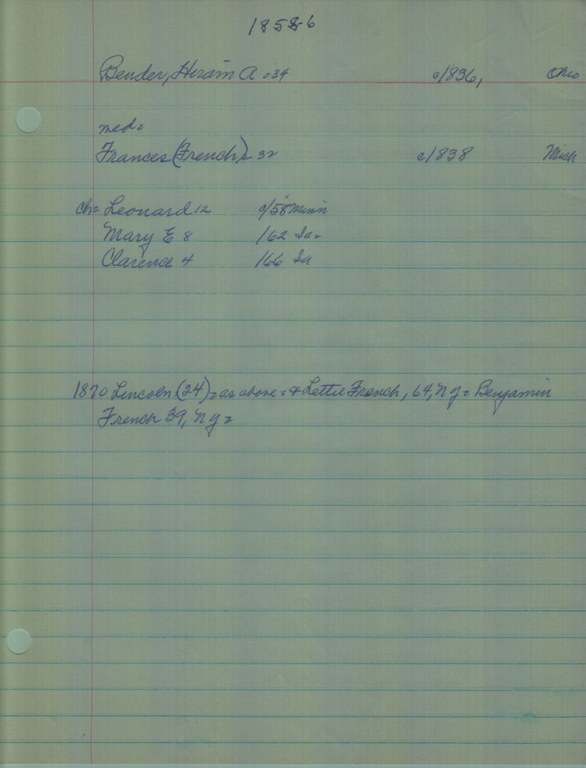 1858-6
Bender, Hiram A - 34 c/1836, Ohio
med.
Frances (French) - 32 c/1838 Mich
ch- Leonard 12 c/58 Minn
Mary E 8 /62 Ia-
Clarence 4 /66 Ia
1870 Lincoln (24) - as above - & Lettie French, 64, N Y - Benjamin
French 39, N Y -